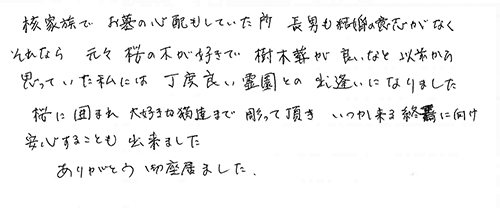 核家族で お墓の心配もしていた所 長男も結婚の意志がなく
それなら 元々 桜の木が好きで 樹木葬が 良いなと 以前から
思っていた私には 丁度良い霊園との 出逢いになりました
桜に囲まれ 大好きな猫達まで 彫って頂き いつか来る終焉に向け
安心することも 出来ました
ありがとう 御座居ました.